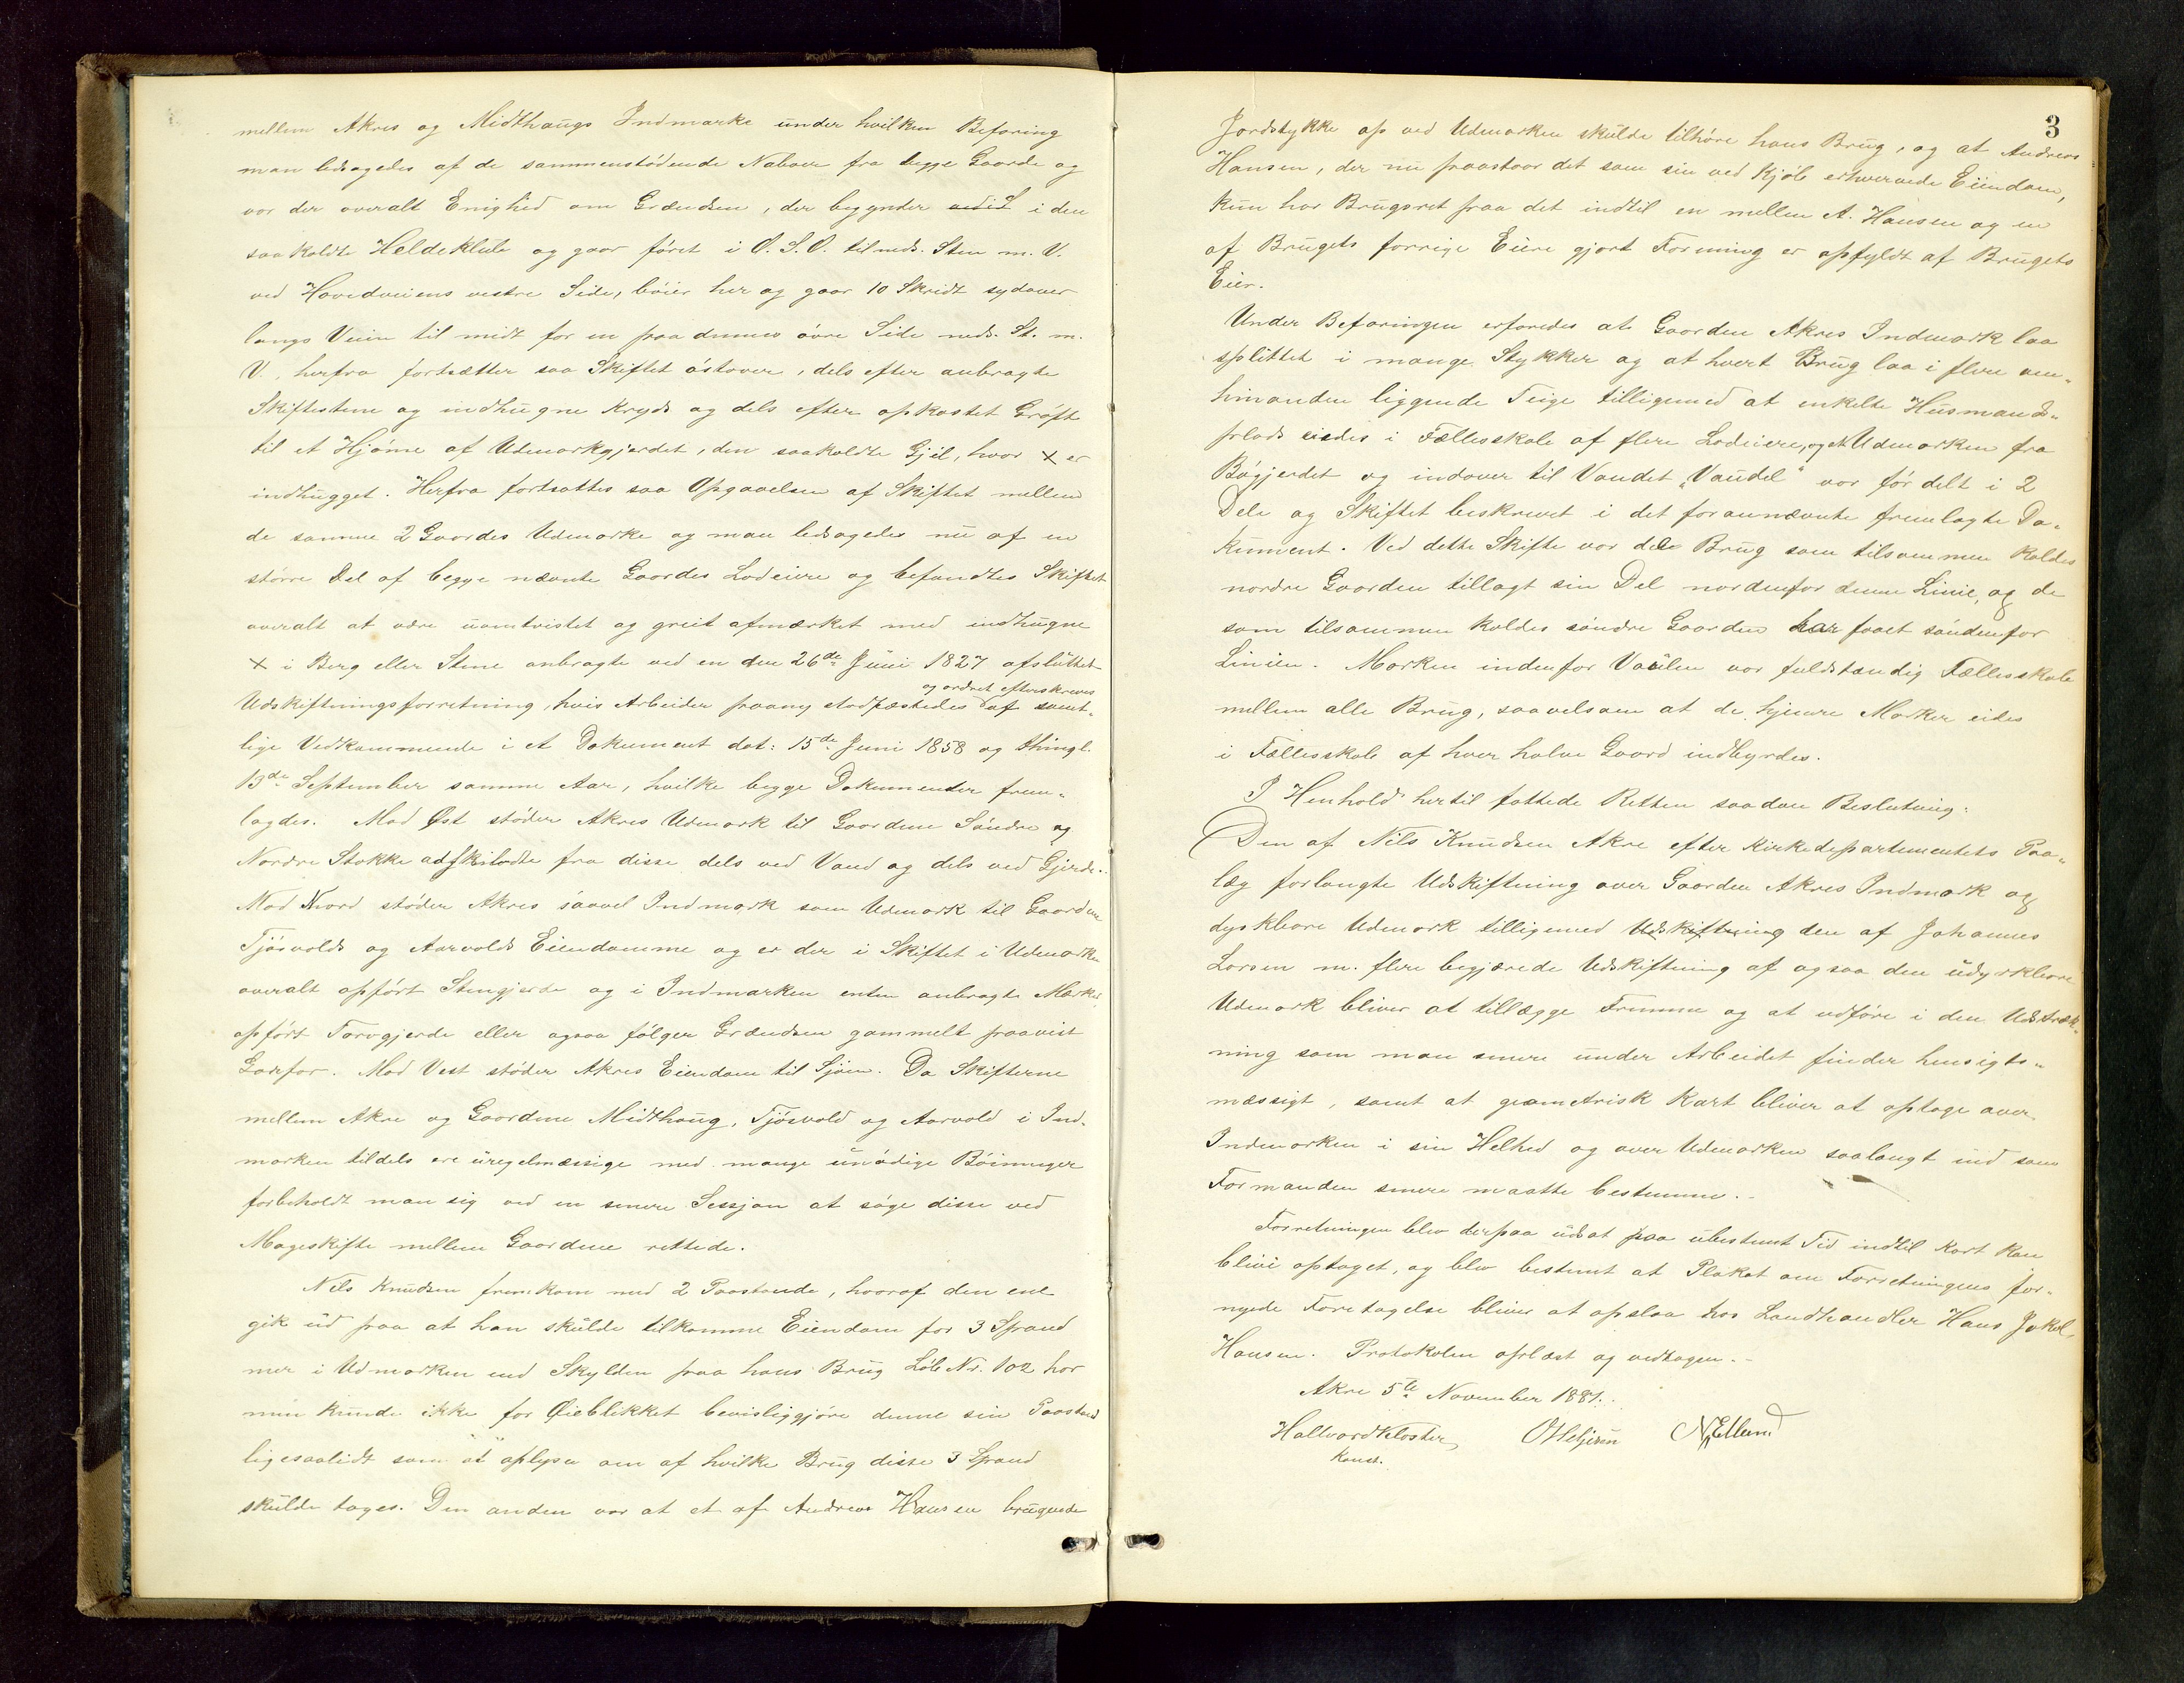 mellem Akres og Midthaugs Indmarke under hvilken Befaring
man ledsagedes af de sammenstødende Naboer fra begge Gaarde og
var der overalt Enighed om Grændsen, der begynder i den
saakaldte Heldeklub og gaar først i O. S. O. til neds. Sten m. V.
ved Hovedveiens vestre Side, bøier her og gaar 10 Skridt sydover
langs Veien til midt for en paa dennes øvre Side neds. St. m.
V., herfra fortsætter saa Skiftet østover, dels efter anbragte
Skiftestene og indhugne Kryds og dels efter opkastet Grøft
til et Hjørne af Udmarkgjerdet, den saakaldte Gjil, hvor x er
indhugget. Herfra fortsattes saa Opgaaelsen af Skiftet mellem
de samme 2 Gaardes Udmarke og man ledsagedes nu af en
større Del af begge nævnte Gaardes Lodeiere og befandtes Skiftet
overalt at være uomtvistet og greit afmærket med indhugne
x i Berg eller Stene anbragte ved en den 26de Juni 1827 afsluttet
og ordret efterskreves
Udskiftningsforretning, hvis Arbeider paany stadfæstedes af samt-
lige Vedkommende i et Dokument dat: 15de Juni 1858 og thingl.
13de September samme Aar, hvilke begge Dokumenter frem-
lagdes. Mod Øst støder Akres Udmark til Gaardene Søndre og
Nordre Stokke adskildte fra disse dels ved Vand og dels ved Gjerde.
Mod Nord støder Akres saavel Indmark som Udmark til Gaardene
Tjøsvolds og Aarvolds Eiendomme og er der i Skiftet i Udmarken
overalt opført Stengjerde og i Indmarken enten anbragte Mærker
opført Torvgjerde eller ogsaa følger Grændsen gammelt paavist
Garfar. Mod Vest støder Akres Eiendom til Sjøen. Da Skifterne
mellem Akre og Gaardene Midthaug, Tjøsvold og Aarvold i Ind-
marken tildels ere uregelmæssige med mange unødige Bøininger
forbeholdt man sig ved en senere Session at søge disse ved
Mageskifte mellem Gaardene rettede.
Nils Knudsen fremkom med 2 Paastande, hvoraf den ene
gik ud paa at han skulde tilkomme Eiendom for 3 Spand
mer i Udmarken end Skylden paa hans Brug Løb Nr. 102 har
men kunde ikke for Øieblikket bevisliggjøre denne sin Paastand
ligesaalidt som at oplyse om af hvilke Brug disse 3 Spand
skulde tages. Den anden var at et af Andreas Hansen brugende
3
Jordstykke op ved Udmarken skulde tilhøre hans Brug, og at Andreas
Hansen, der nu paastaar det som sin ved Kjøb erhvervede Eiendom,
kun har Brugsret paa det indtil en mellem A. Hansen og en
af Brugets forrige Eiere gjort Forening er opfyldt af Brugets
Eier.
Under Befaringen erfaredes at Gaarden Akres Indmark laa
splittet i mange Stykker og at hvert Brug laa i flere om-
hinanden liggende Teige tilligemed at enkelte Husmands-
plads eiedes i Fællesskab af flere Lodeiere, og at Udmarken fra
Bøgjerdet og indover til Vandet „Vaudel" var før delt i 2
Dele og Skiftet beskrevet i det forannævnte fremlagte Do-
kument. Ved dette Skifte var de Brug som tilsammen kaldes
nordre Gaarden tillagt sin Del nordenfor denne Linie, og de
som tilsammen kaldes søndre Gaarden har faaet søndenfor
Linien. Marken indenfor Vaulen var fuldstændig Fællesskab
mellem alle Brug, saavelsom at de hjemre Marker eides
i Fællesskab af hver halve Gaard indbyrdes.
I Henhold hertil fattede Retten saadan Beslutning:
Den af Nils Knudsen Akre efter Kirkedepartementets Paa-
læg forlangte Udskiftning over Gaarden Akres Indmark og
dyrkbare Udmark tilligemed Udskiftning den af Johannes
Larsen m. flere begjærede Udskiftning af ogsaa den udyrkbare
Udmark bliver at tillægge Fremme og at udføre i den Udstræk-
ning som man senere under Arbeidet finder hensigts-
mæssigt, samt at geometrisk Kart bliver at optage over
Indmarken i sin Helhed og over Udmarken saalangt ind som
Formanden senere maatte bestemme.
Forretningen blev derpaa udsat paa ubestemt Tid indtil Kart kan
blive optaget, og blev bestemt at Plakat om Forretningens for-
nyede Foretagelse bliver at opslaa hos Landhandler Hans Jakob
Hansen. Protokolen oplæst og vedtagen.
Akre 5te November 1881.
Hallvard Kloster
N. Ellum
Konst.